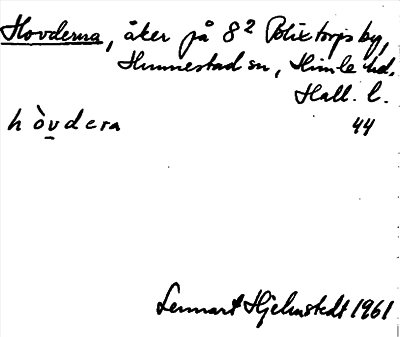 Hovderna, åker på 8² Politorps by,
Hunnestad sn, Himle hd.
Hall. l.
hòvdera 44
Lennart Hjelmstedt 1961